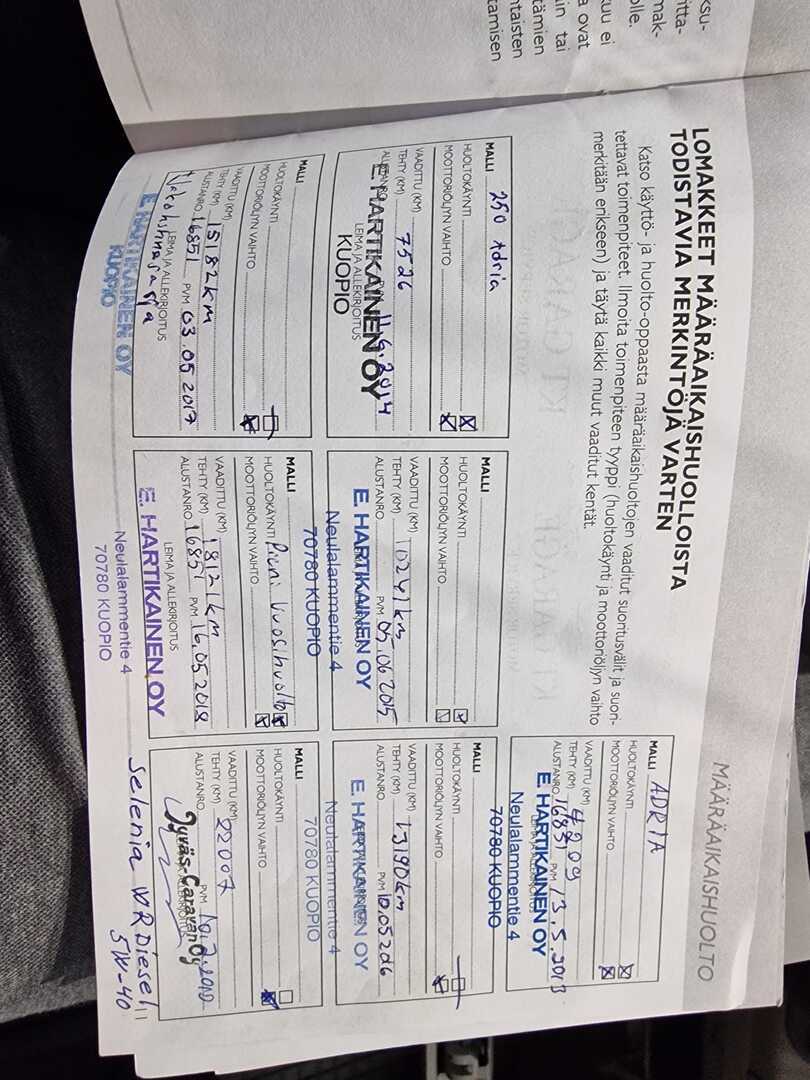 MÄÄRÄAIKAISHUOLTO
LOMAKKEET MÄÄRÄAIKAISHUOLLOISTA
TODISTAVIA MERKINTÖJÄ VARTEN
Katso käyttö- ja huolto-oppaasta määräaikaishuoltojen vaaditut suoritusvälit ja suori-
tettavat toimenpiteet. Ilmoita toimenpiteen tyyppi (huoltokäynti ja moottoriöljyn vaihto
merkitään erikseen) ja täytä kaikki muut vaaditut kentät.
MALLI ADRIA
HUOLTOKÄYNTI
MOOTTORIÖLJYN VAIHTO
VAADITTU (KM)
TEHTY (KM) 4209
ALUSTANRO 16851 PVM 13.5.2013
E. HARTIKAINEN OY
Neulalammentie 4
70780 KUOPIO
MALLI 250 Adria
HUOLTOKÄYNTI
MOOTTORIÖLJYN VAIHTO
VAADITTU (KM)
TEHTY (KM) 7526
ALUSTANRO PVM 11.6.2014
E. HARTIKAINEN OY
LEIMA JA ALLEKIRJOITUS
KUOPIO
MALLI
HUOLTOKÄYNTI
MOOTTORIÖLJYN VAIHTO
VAADITTU (KM)
TEHTY (KM) 10241 km
ALUSTANRO PVM 05.06.2015
E. HARTIKAINEN OY
Neulalammentie 4
70780 KUOPIO
MALLI
HUOLTOKÄYNTI
MOOTTORIÖLJYN VAIHTO
VAADITTU (KM)
TEHTY (KM) 13190 km
ALUSTANRO PVM 10.05.2016
E. HARTIKAINEN OY
Neulalammentie 4
70780 KUOPIO
MALLI
HUOLTOKÄYNTI
MOOTTORIÖLJYN VAIHTO
VAADITTU (KM)
TEHTY (KM) 15182 km
ALUSTANRO 16851 PVM 03.05.2017
LEIMA JA ALLEKIRJOITUS
E. HARTIKAINEN OY
KUOPIO
MALLI
HUOLTOKÄYNTI Pieni Vuosihuolto
MOOTTORIÖLJYN VAIHTO
VAADITTU (KM)
TEHTY (KM) 18121 km
ALUSTANRO 16851 PVM 16.05.2018
LEIMA JA ALLEKIRJOITUS
E. HARTIKAINEN OY
Neulalammentie 4
70780 KUOPIO
MALLI
HUOLTOKÄYNTI
MOOTTORIÖLJYN VAIHTO
VAADITTU (KM)
TEHTY (KM) 22007
ALUSTANRO PVM
Jyväs-Caravan Oy
Selenia WR Diesel
5W-40